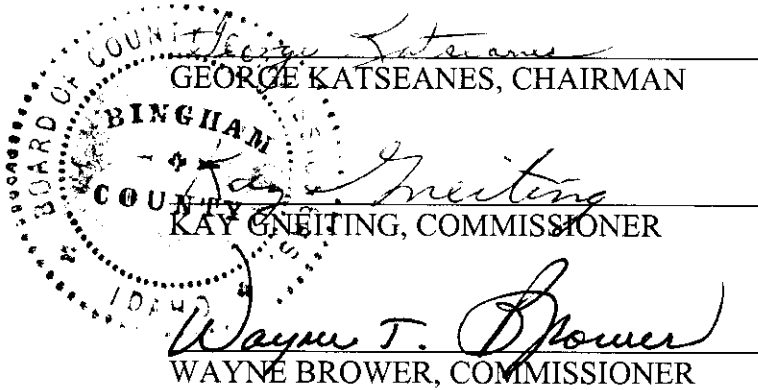 BOARD OF COUNTY
BINGHAM
COUNTY
IDAHO
George Katseanes
GEORGE KATSEANES, CHAIRMAN
Kay Gneiting
KAY GNEITING, COMMISSIONER
Wayne T. Brower
WAYNE BROWER, COMMISSIONER